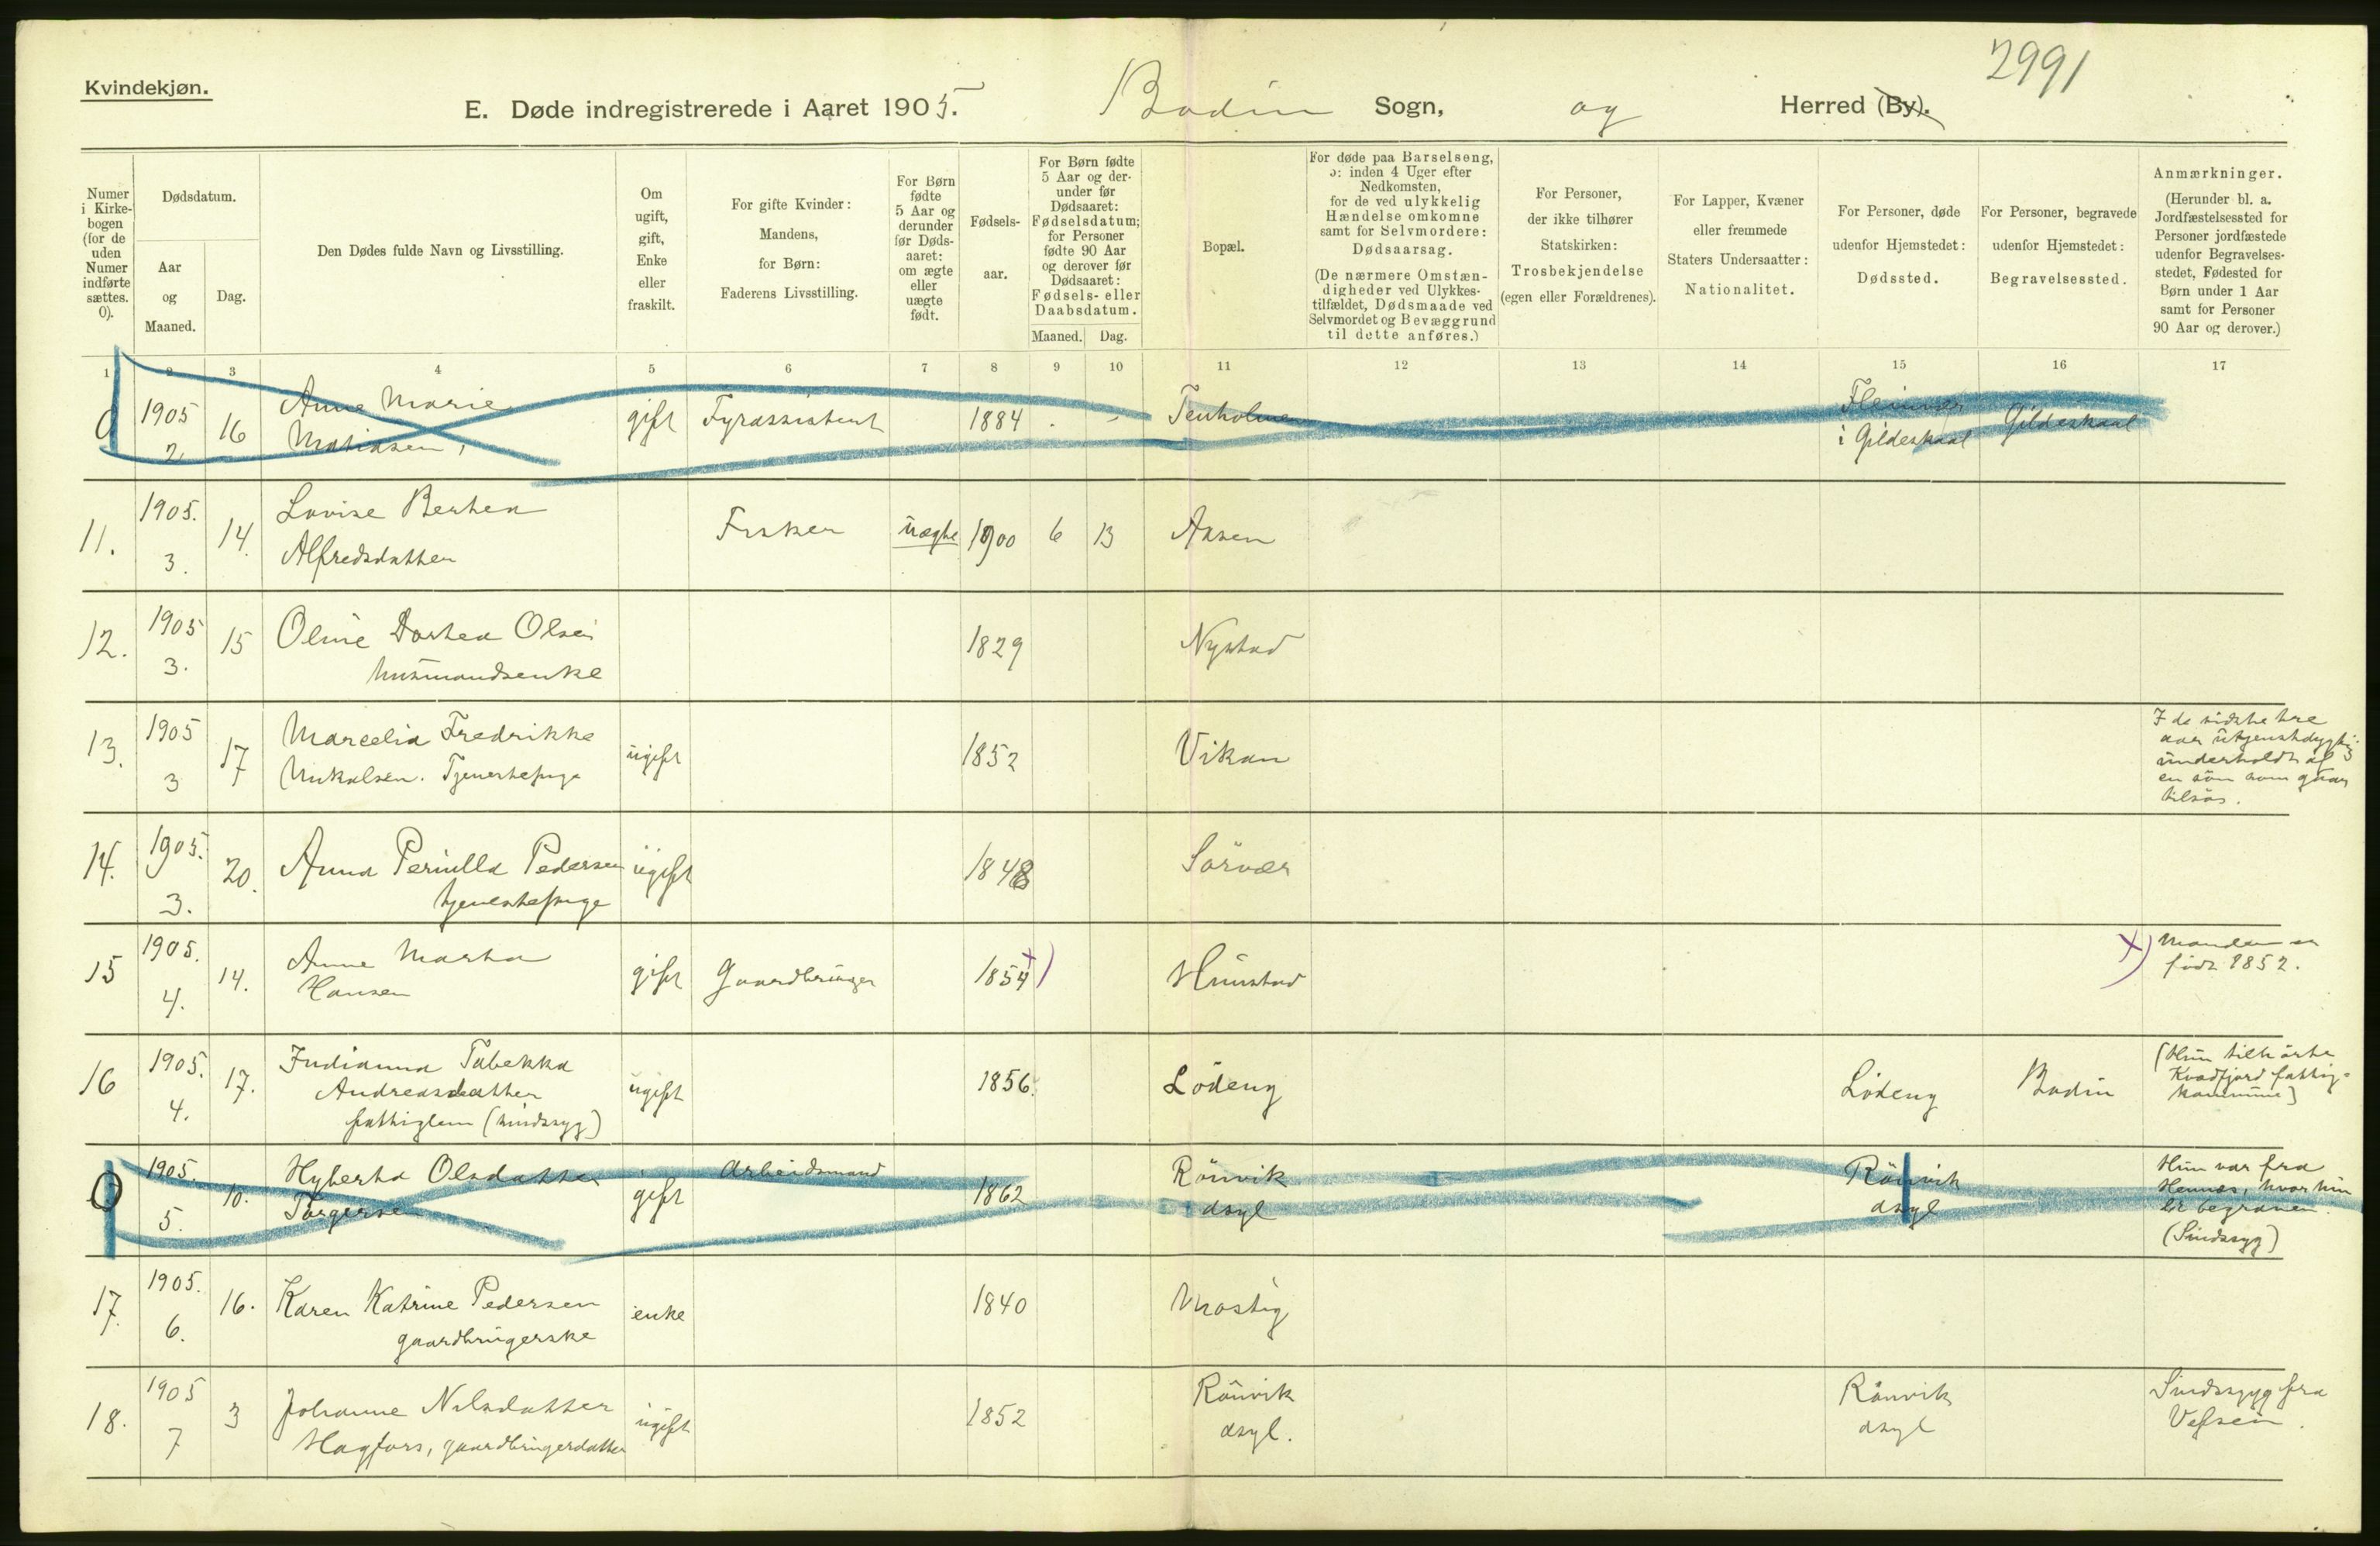 2991
Kvindekjøn.
E. Døde indregistrerede i Aaret 1905. Bodin Sogn, og Herred (By).
Numer
i Kirke-
bogen
(for de
uden
Numer
indførte
sættes.
0).
Dødsdatum.
Aar
og
Maaned.
Dag.
Den Dødes fulde Navn og Livsstilling.
Om
ugift,
gift,
Enke
eller
fraskilt.
For gifte Kvinder:
Mandens,
for Børn:
Faderens Livsstilling.
For Børn
fødte
5 Aar og
derunder
før Døds-
aaret:
om ægte
eller
uægte
født.
Fødsels-
aar.
For Børn fødte
5 Aar og der-
under før
Dødsaaret:
Fødselsdatum;
for Personer
fødte 90 Aar
og derover før
Dødsaaret:
Fødsels- eller
Daabsdatum.
Maaned. Dag.
Bopæl.
For døde paa Barselseng,
ɔ: inden 4 Uger efter
Nedkomsten,
for de ved ulykkelig
Hændelse omkomne
samt for Selvmordere:
Dødsaarsag.
(De nærmere Omstæn-
digheder ved Ulykkes-
tilfældet, Dødsmaade ved
Selvmordet og Bevæggrund
til dette anføres.)
For Personer,
der ikke tilhører
Statskirken:
Trosbekjendelse
(egen eller Forældrenes).
For Lapper, Kvæner
eller fremmede
Staters Undersaatter:
Nationalitet.
For Personer, døde
udenfor Hjemstedet:
Dødssted.
For Personer, begravede
udenfor Hjemstedet:
Begravelsessted.
Anmærkninger.
(Herunder bl. a.
Jordfæstelsessted for
Personer jordfæstede
udenfor Begravelses-
stedet, Fødested for
Børn under 1 Aar
samt for Personer
90 Aar og derover.)
1 2 3 4 5 6 7 8 9 10 11 12 13 14 15 16 17
0 1905 2 16 Anne Marie
Matiasen, gift Fyrassistent 1884 Tenholmen Fleinvær
i Gildeskaal Gildeskaal
11. 1905. 3. 14. Lovise Berthea
Alfredsdatter Fisker uægte 1900 6 13 Asen
12. 1905 3. 15 Oline Dorthea Olsen
husmandsenke 1829 Nystad
13. 1905 3 17 Marcelia Fredrikke
Nikolsen. Tjenestepige ugift 1852 Vikan
I de sidste tre
aar utjenstdygtig
underholdt af
en søn som gaar
tilsøs.
14. 1905. 3. 20. Anna Pernilla Pedersen
tjenestepige ugift 1848 Sörvær
15 1905. 4. 14. Anne Marta
Hansen gift Gaardbruger 1854 x) Hunstad
x) Manden er
født 1852.
16 1905. 4. 17. Indianna Tabekka
Andreasdatter
fattiglem (sindssyg) ugift 1856. Lödeng Lödeng Bodin
(Hun tilhörte
Kvædfjord fattig-
kommune)
0 1905. 5. 10. Hyberta Olsdatter
Torgersen gift Arbeidsmand 1862 Rönvik
asyl Rönvik
asyl
Hun var fra
Hemnes, hvor hun
er begraven.
(Sindssyg)
17. 1905. 6. 16. Karen Katrine Pedersen
gaardbrugerske enke 1840 Mostig
18. 1905 7 3 Johanne Nilsdatter
Hagfors, gaardbrugerdatter ugift 1852 Rönvik
asyl. Rönvik
asyl
Sindssyg fra
Vefsen.